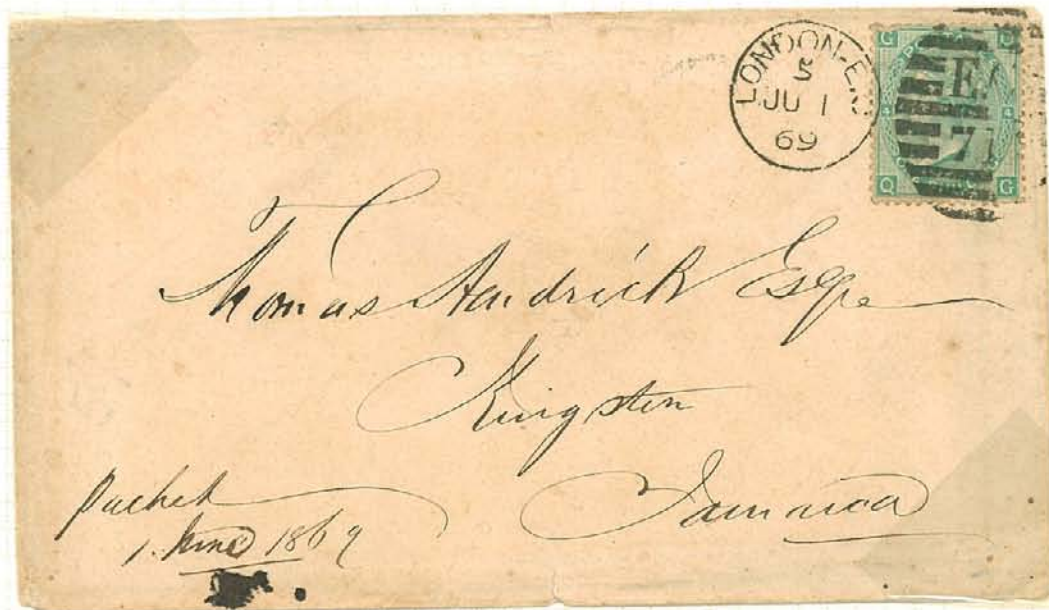 LONDON-E.C
5
JU 1
69
G Q
E
71
4 4
Q G
Thomas Hendrick Esqre
Kingston
Jamaica
Packet
1. June 1869